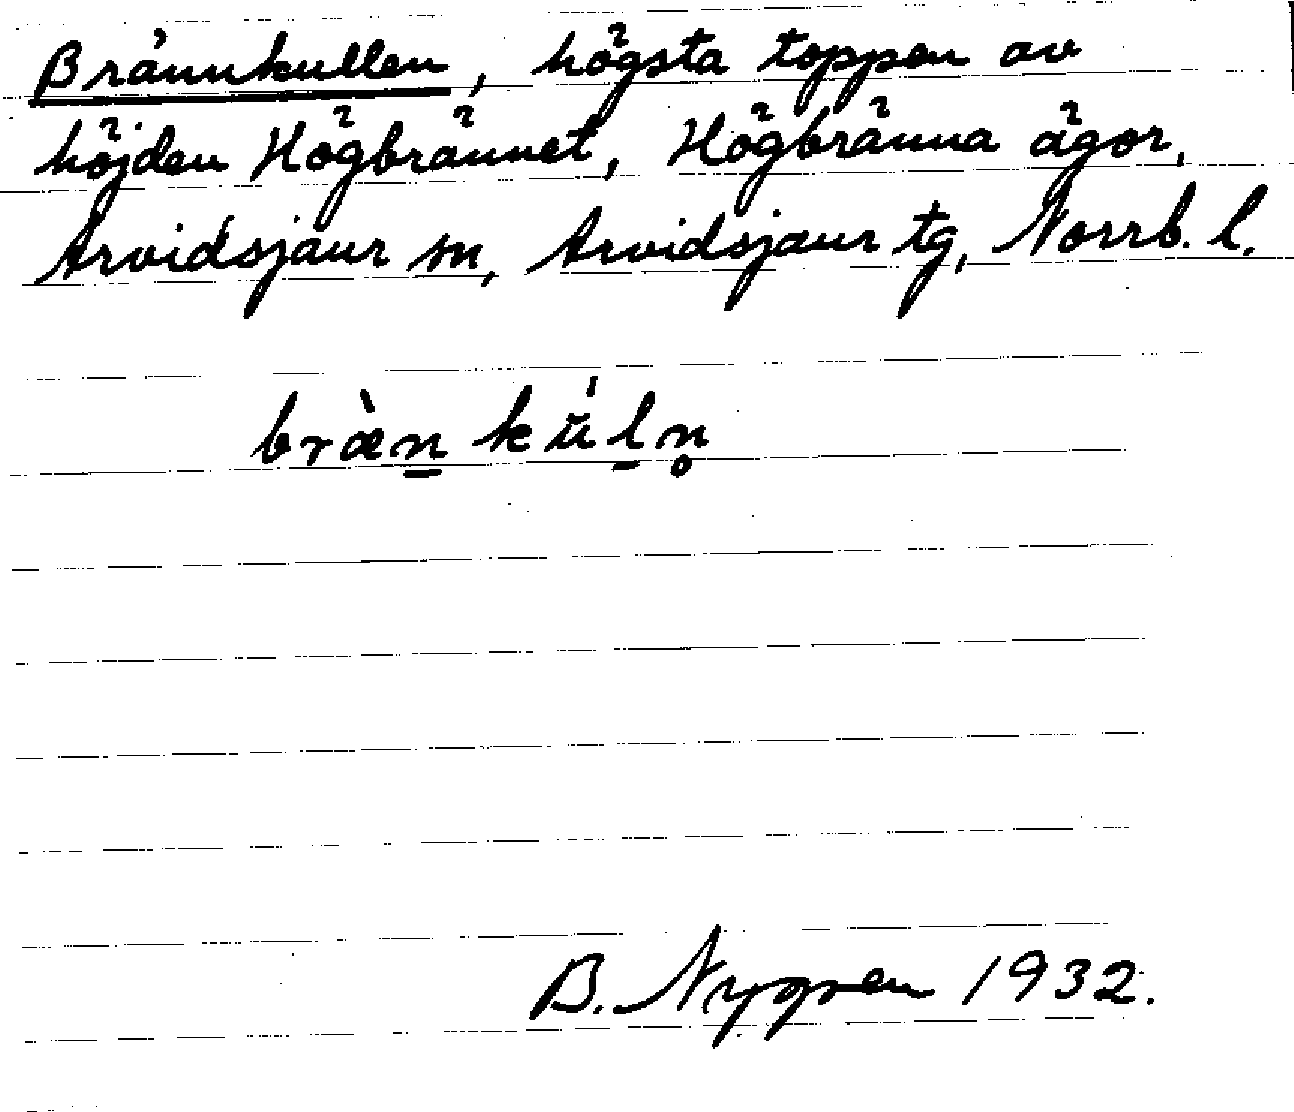 Brännkullen, högsta toppen av
höjden Högbrännet, Högbränna ägor,
Arvidsjaur sn, Arvidsjaur tg, Norrb. l.
bræ̀n̲ kŭ́l̲n̥
B. Nygren 1932.